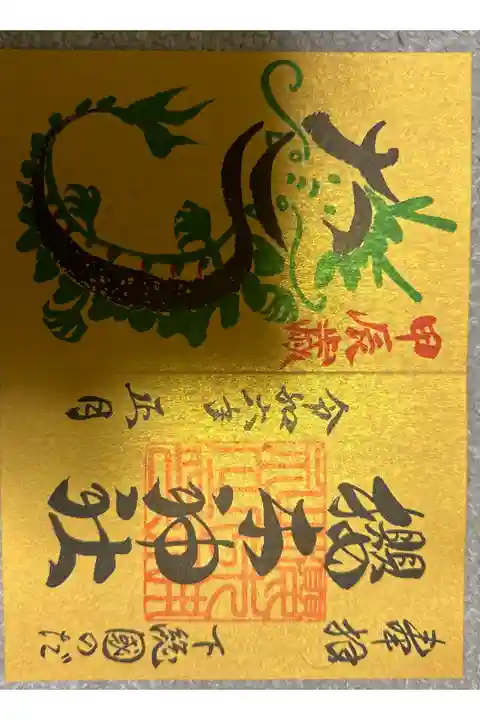 奉拝
下総國のだ
櫻木神社
令和六年
正月
甲辰歳